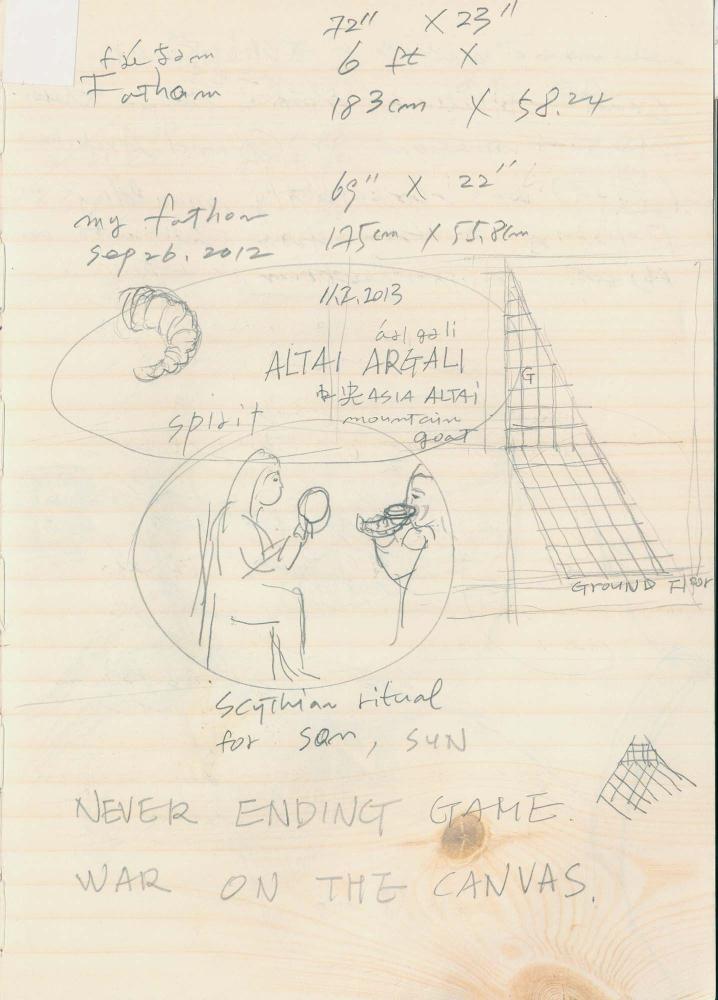 72" X 23"
fǽðəm 6 ft X
Fathom 183cm X 58.24
69" X 22"
my fathom 175cm X 55.8cm
Sep 26. 2012
11.2.2013
ɑ́ərgəli
ALTAI ARGALI
中央ASIA ALTAi
mountain
goat
spirit
G
GROUND FlOOR
Scythian ritual
for SAn, SUN
NEVER ENDING GAME.
WAR ON THE CANVAS.